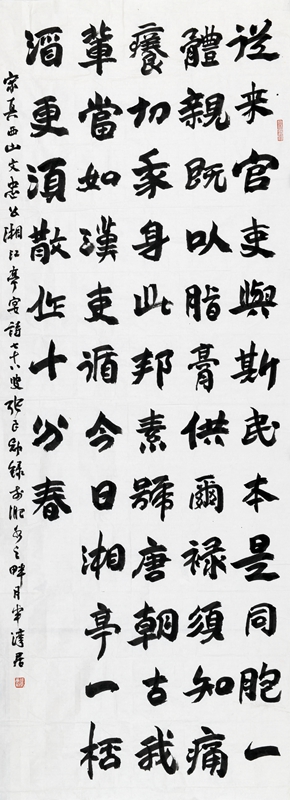 從来官吏與斯民本是同胞一
體親既以脂膏供爾禄須知痛
癢切身此邦素號唐朝古我
輩當如漢吏循今日湘亭一桮
酒更須散作十分春
家真西山文忠公湘江亭宴詩七十八叟録於淝水之畔月半潭居